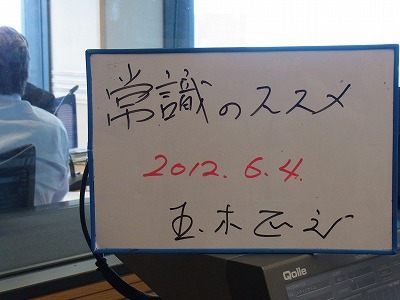 常識のススメ
2012.6.4.
玉木正之
Qolle